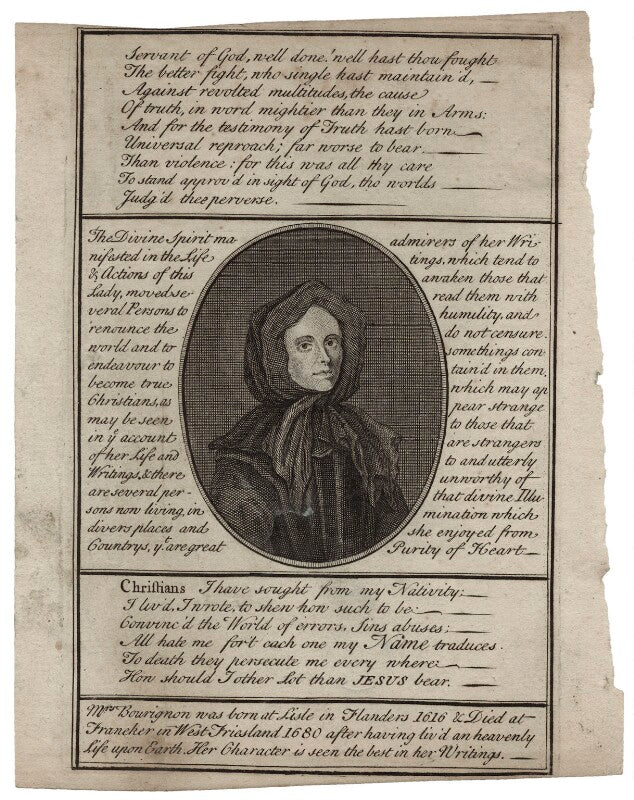 Servant of God, well done! well hast thou fought
The better fight, who single hast maintain'd,
Against revolted multitudes, the cause
Of truth, in word mightier than they in Arms:
And for the testimony of Truth hast born
Universal reproach; far worse to bear
Than violence: for this was all thy care
To stand approv'd in sight of God, tho worlds
Judg'd thee perverse.
The Divine Spirit ma
nifested in the Life
& Actions of this
Lady, moved se-
veral Persons to
renounce the
world and to
endeavour to
become true
Christians, as
may be seen
in ye account
of her Life and
Writings, & there
are several per-
sons now living, in
divers places and
Countrys, yt. are great
admirers of her Wri-
tings, which tend to
awaken those that
read them with
humility, and
do not censure
somethings con-
tain'd in them,
which may ap
pear strange
to those that
are strangers
to and utterly
unworthy of
that divine Illu-
mination which
she enjoyed from
Purity of Heart
Christians I have sought from my Nativity;
I liv'd, I wrote, to shew how such to be
Convinc'd the World of errors, Sins abuses;
All hate me for't each one my Name traduces.
To death they persecute me every where
How should I other Lot than JESUS bear.
Mrs Bourignon was born at Lisle in Flanders 1616 & Died at
Franeker in West Friesland 1680 after having liv'd an heavenly
Life upon Earth. Her Character is seen the best in her Writings.